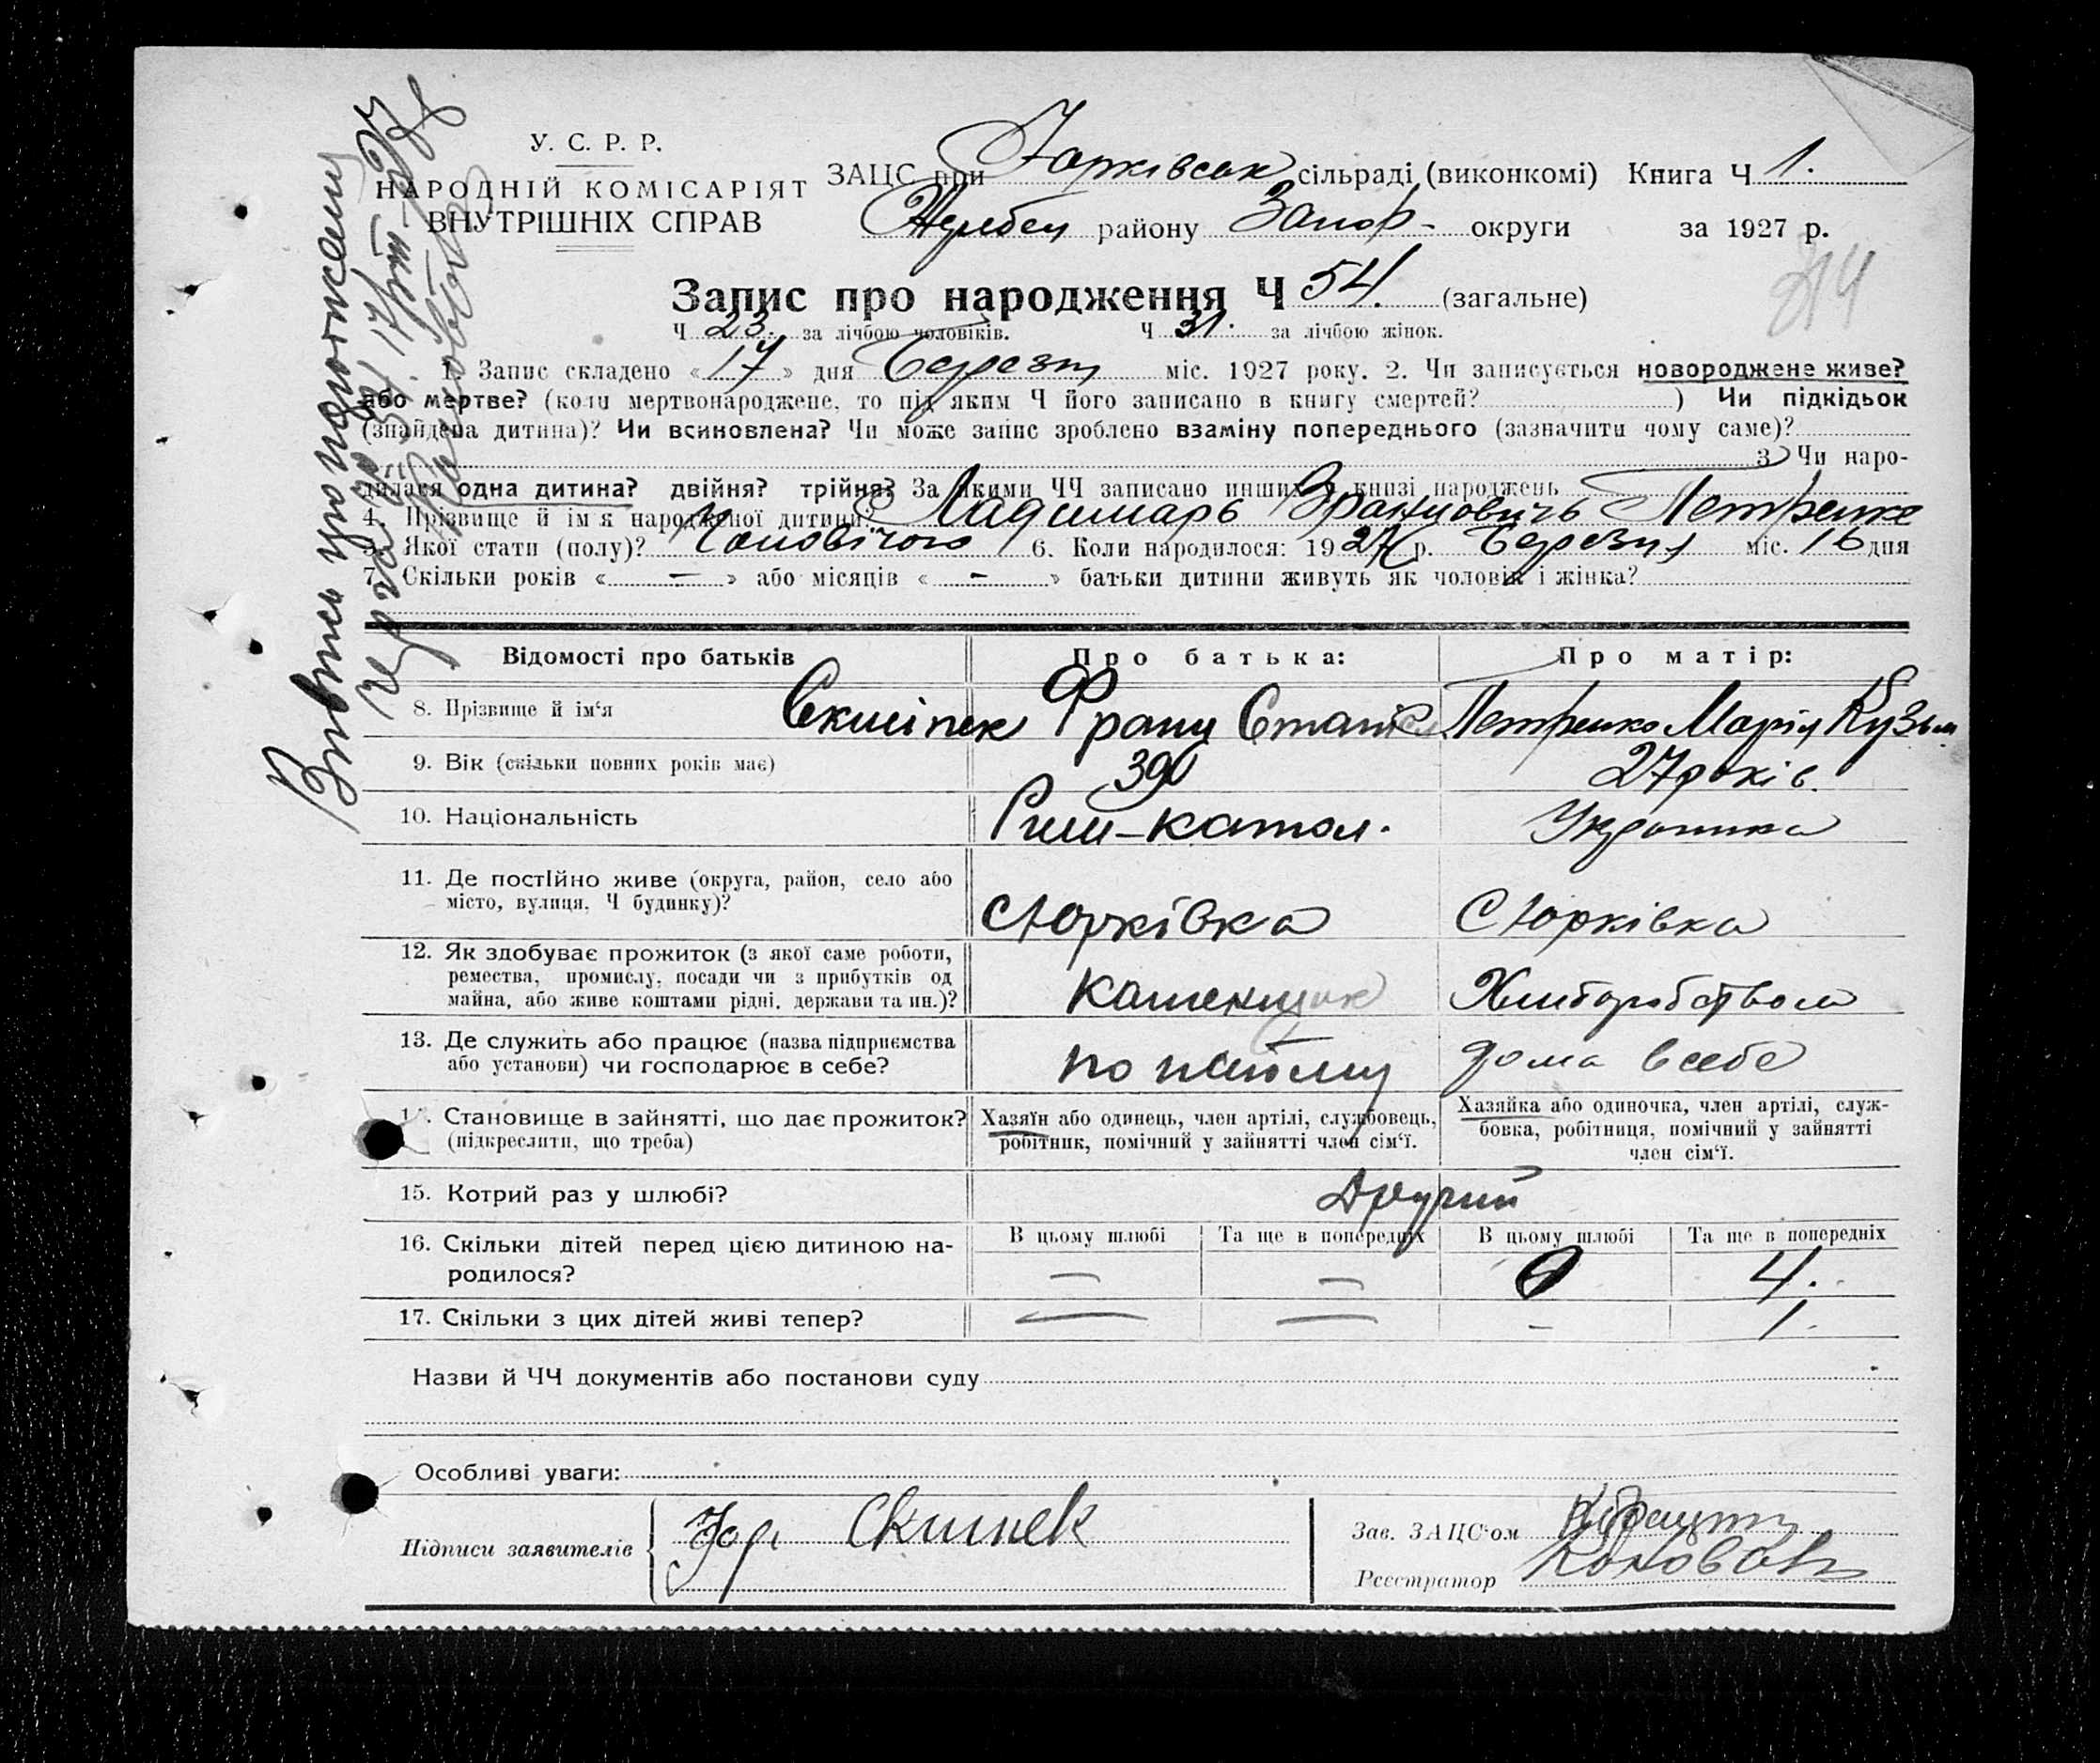 У. С. Р. Р.
НАРОДНІЙ КОМІСАРІЯТ
ВНУТРІШНІХ СПРАВ
ЗАЦС при Юрківськ сільраді (виконкомі) Книга Ч 1.
Жеребец району Запор- округи за 1927 р.
Запис про народження Ч 54. (загальне)
Ч 23. за лічбою чоловіків. Ч 31. за лічбою жінок.
1. Запис складено «17» дня Березня міс. 1927 року. 2. Чи записується новороджене живе?
або мертве? (коли мертвонароджене, то під яким Ч його записано в книгу смертей? ) Чи підкідьок
(знайдена дитина)? Чи всиновлена? Чи може запис зроблено взаміну попереднього (зазначити чому саме)?
3. Чи наро-
дилася одна дитина? двійня? трійня? За якими ЧЧ записано инших в книзі народжень
4. Прізвище й ім'я народженої дитини? Ладимарь Францовичь Петренко
5. Якої стати (полу)? Чоловічого 6. Коли народилося: 1927 р. Березня міс. 16 дня
7. Скільки років « — » або місяців « - » батьки дитини живуть як чоловік і жінка?
Відомості про батьків Про батька: Про матір:
8. Прізвище й ім‘я Франц Петренко Марія Кузьм
9. Вік (скільки повних років має) 39 27 років.
10. Національність Рим-катол. Українка
11. Де постІйно живе (округа, район, село або
місто, вулиця, Ч будинку)? с Юрківка с Юрківка
12. Як здобуває прожиток (з якої саме роботи,
ремества, промислу, посади чи з прибутків од
майна, або живе коштами рідні, держави та ин.)? каменщик Хлиборобством
13. Де служить або працює (назва підприємства
або установи) чи господарює в себе? по найму дома в себе
14. Становище в зайнятті, що дає прожиток?
(підкреслити, що треба)
Хазяїн або одинець, член артілі, службовець,
робітник, помічний у зайнятті член сім‘ї.
Хазяйка або одиночка, член артілі, служ-
бовка, робітниця, помічний у зайнятті
член сім‘ї.
15. Котрий раз у шлюбі? Другий
В цьому шлюбі Та ще в попередніх В цьому шлюбі Та ще в попередніх
16. Скільки дітей перед цією дитиною на-
родилося? — — 0 4.
17. Скільки з цих дітей живі тепер? — — - 1.
Назви й ЧЧ документів або постанови суду
Особливі уваги:
Підписи заявителів
Зав. ЗАЦС‘ом
Реєстратор